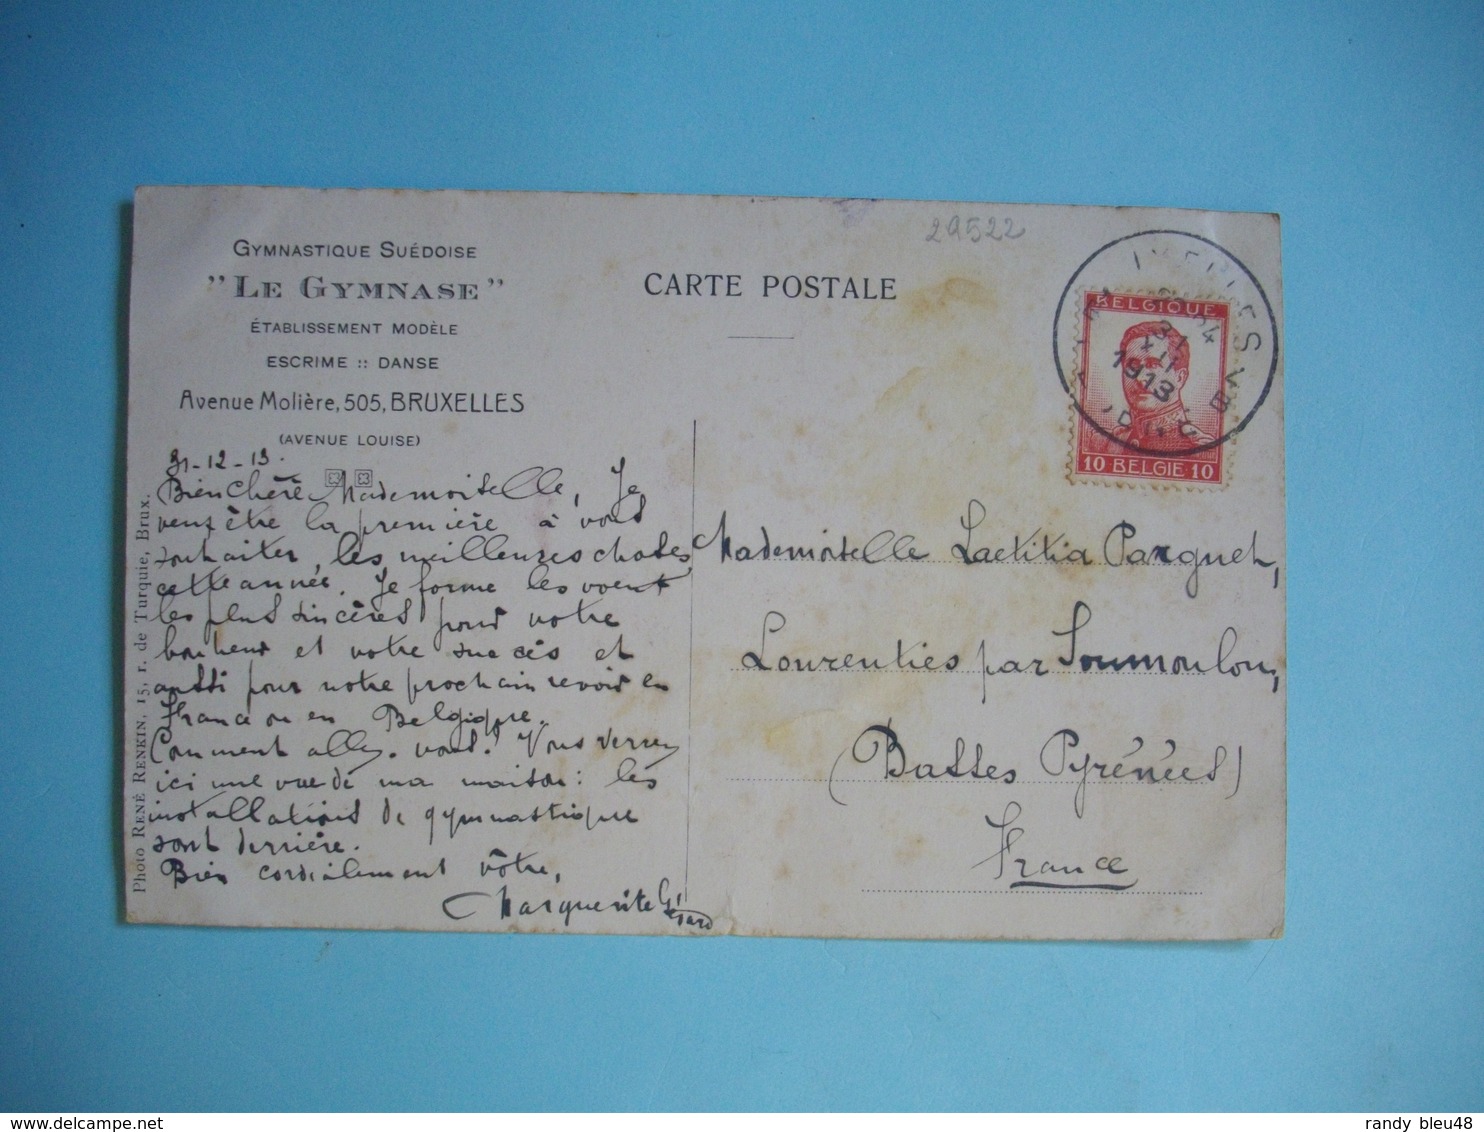 29522
GYMNASTIQUE SUÉDOISE
"LE GYMNASE"
ÉTABLISSEMENT MODÈLE
ESCRIME :: DANSE
Avenue Molière, 505, BRUXELLES
(AVENUE LOUISE)
CARTE POSTALE
IXELLES
31
XII
1913
BELGIQUE
10 BELGIE 10
31-12-13.
Bien chère Mademoiselle, Je
veux être la première à vous
souhaiter, les meilleures choses
cette année. Je forme les voeux
les plus sincères pour votre
bonheur et votre succès et
aussi pour notre prochain revoir en
France ou en Belgique.
Comment allez-vous? Vous verrez
ici une vue de ma maison: les
installations de gymnastique
sont derrière.
Bien cordialement vôtre,
Marguerite Gérard
Mademoiselle Laetitia Parguet,
Lourenties par Soumoulou,
(Basses Pyrénées)
France
Photo RENÉ RENKIN, 15, r. de Turquie, Brux.
randy bleu48